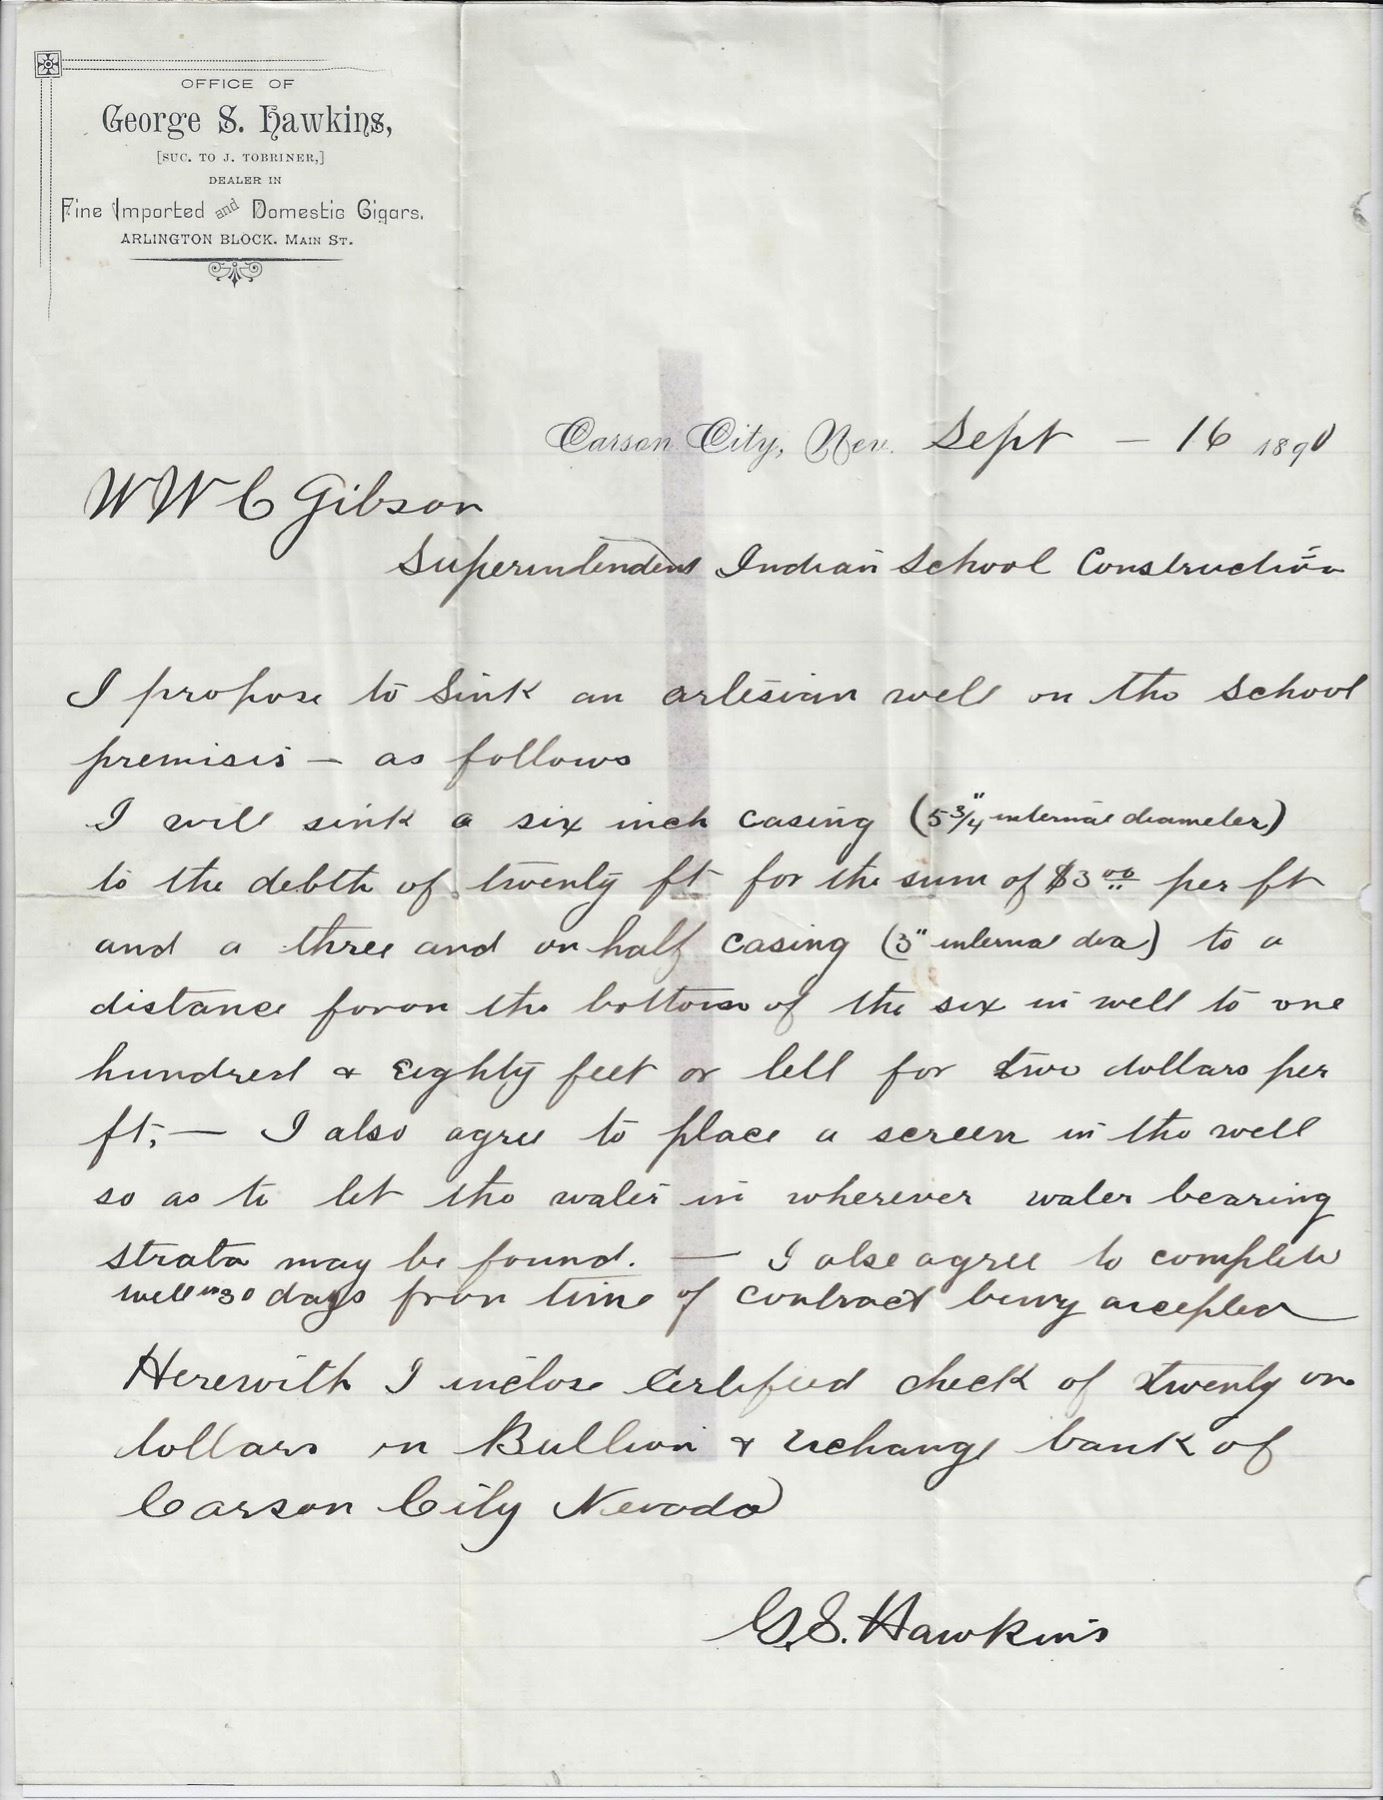 OFFICE OF
George S. Hawkins,
[SUC. TO J. TOBRINER,]
DEALER IN
Fine Imported and Domestic Cigars.
ARLINGTON BLOCK. MAIN ST.
Carson City, Nev. Sept — 16 1890
W W C Gibson
Superintendent Indian School Construction
I propose to sink an artesian well on the school
premisis — as follows
I will sink a six inch casing (5 3/4" internal diameter)
to the debth of twenty ft for the sum of $3 00 per ft
and a three and on half casing (3" internal dia) to a
distance from the bottom of the six in well to one
hundred & Eighty feet or lell for two dollars per
ft, — I also agree to place a screen in the well
so as to let the water in wherever water bearing
strata may be found. — I also agree to complete
well in 30 days from time of contract being accepted
Herewith I inclose Certified check of twenty one
dollars on Bullion & Exchange bank of
Carson City Nevada
G. S. Hawkins